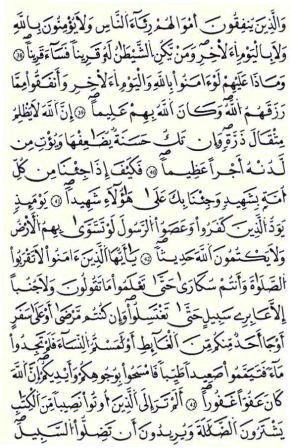 وَالَّذِينَ يُنفِقُونَ أَمْوَٰلَهُمْ رِئَآءَ النَّاسِ وَلَا يُؤْمِنُونَ بِاللَّهِ
وَلَا بِالْيَوْمِ الْأَخِرِ وَمَن يَكُنِ الشَّيْطَٰنُ لَهُۥ قَرِينًا فَسَآءَ قَرِينًا ٣٨
وَمَاذَا عَلَيْهِمْ لَوْ ءَامَنُوا۟ بِاللَّهِ وَالْيَوْمِ الْأَخِرِ وَأَنفَقُوا۟ مِمَّا
رَزَقَهُمُ اللَّهُ وَكَانَ اللَّهُ بِهِمْ عَلِيمًا ٣٩ إِنَّ اللَّهَ لَا يَظْلِمُ
مِثْقَالَ ذَرَّةٍ وَإِن تَكُ حَسَنَةً يُضَٰعِفْهَا وَيُؤْتِ مِن
لَّدُنْهُ أَجْرًا عَظِيمًا ٤٠ فَكَيْفَ إِذَا جِئْنَا مِن كُلِّ
أُمَّةٍ بِشَهِيدٍ وَجِئْنَا بِكَ عَلَىٰ هَٰٓؤُلَآءِ شَهِيدًا ٤١ يَوْمَئِذٍ
يَوَدُّ الَّذِينَ كَفَرُوا۟ وَعَصَوُا۟ الرَّسُولَ لَوْ تُسَوَّىٰ بِهِمُ الْأَرْضُ
وَلَا يَكْتُمُونَ اللَّهَ حَدِيثًا ٤٢ يَٰٓأَيُّهَا الَّذِينَ ءَامَنُوا۟ لَا تَقْرَبُوا۟
الصَّلَوٰةَ وَأَنتُمْ سُكَٰرَىٰ حَتَّىٰ تَعْلَمُوا۟ مَا تَقُولُونَ وَلَا جُنُبًا
إِلَّا عَابِرِى سَبِيلٍ حَتَّىٰ تَغْتَسِلُوا۟ وَإِن كُنتُم مَّرْضَىٰٓ أَوْ عَلَىٰ سَفَرٍ
أَوْ جَآءَ أَحَدٌ مِّنكُم مِّنَ الْغَآئِطِ أَوْ لَٰمَسْتُمُ النِّسَآءَ فَلَمْ تَجِدُوا۟
مَآءً فَتَيَمَّمُوا۟ صَعِيدًا طَيِّبًا فَامْسَحُوا۟ بِوُجُوهِكُمْ وَأَيْدِيكُمْ إِنَّ اللَّهَ
كَانَ عَفُوًّا غَفُورًا ٤٣ أَلَمْ تَرَ إِلَى الَّذِينَ أُوتُوا۟ نَصِيبًا مِّنَ الْكِتَٰبِ
يَشْتَرُونَ الضَّلَٰلَةَ وَيُرِيدُونَ أَن تَضِلُّوا۟ السَّبِيلَ